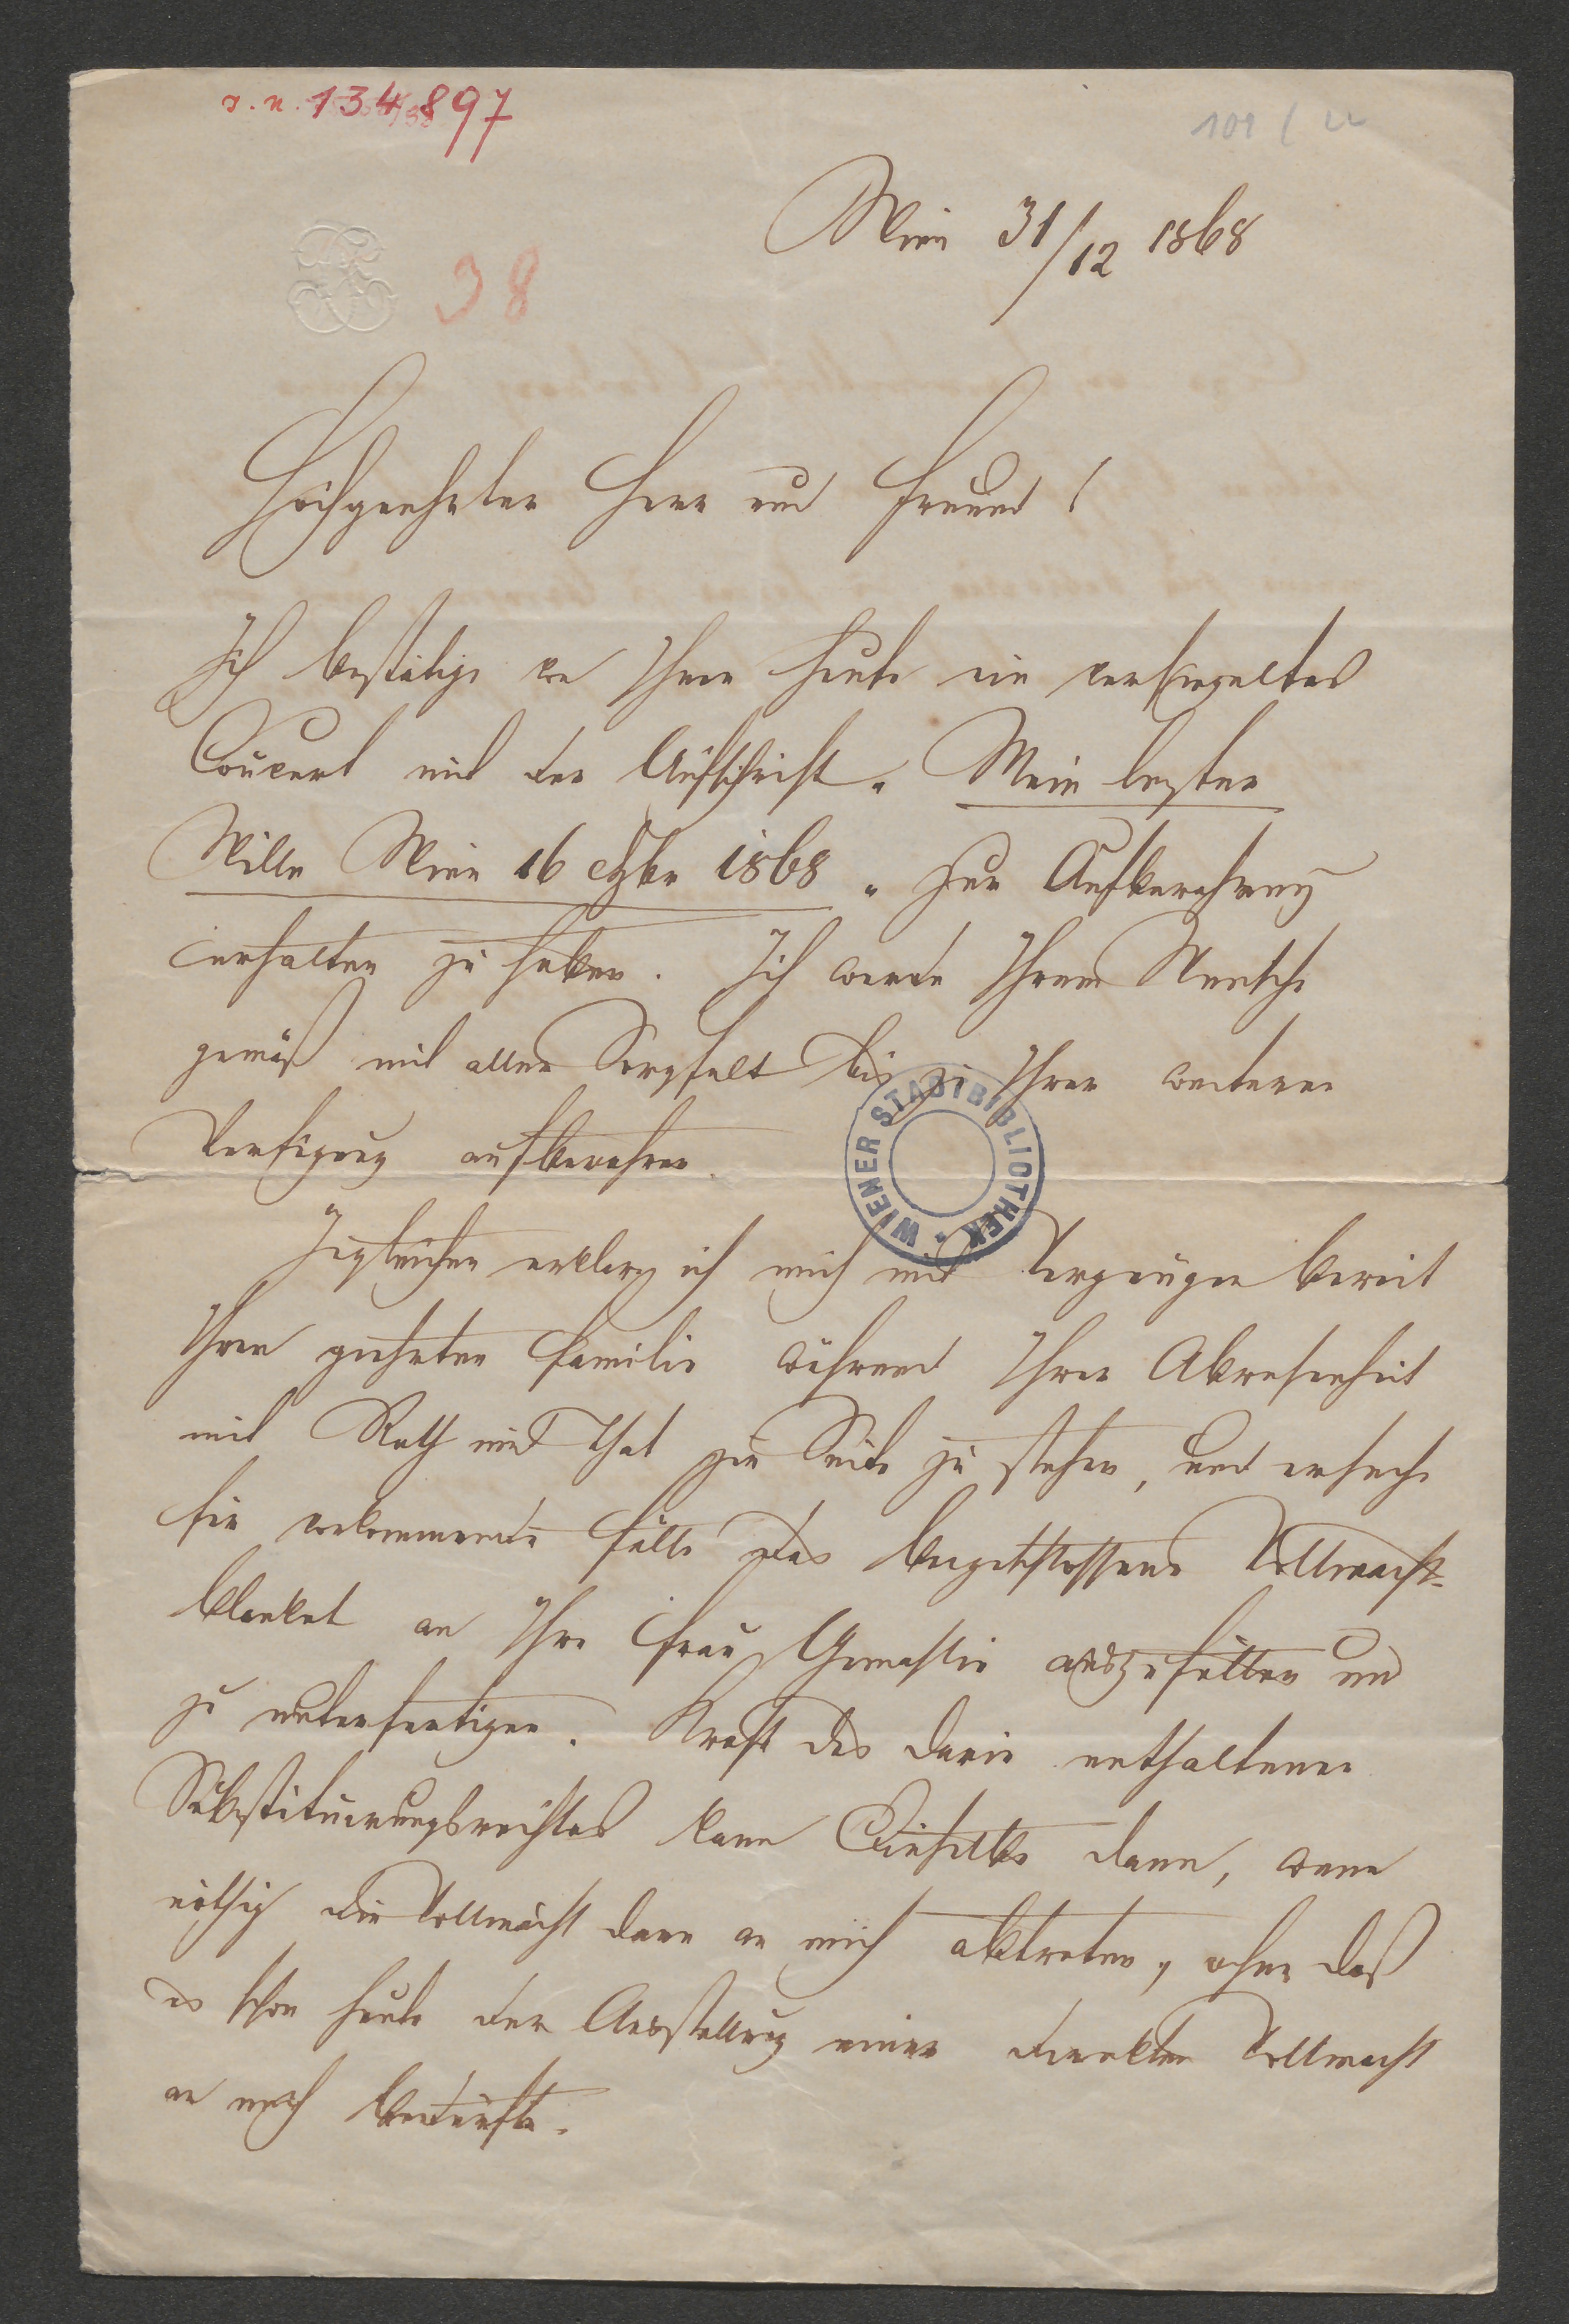 I. N. 134.897
109 / 22
Wien 31/12 1868
38
Hochgeehrter Herr und Freund!
Ich bestätige von Ihnen heute ein versiegeltes
Couvert mit der Aufschrift „Mein lezter
Wille Wien 16 1868" zur Aufbewahrung
erhalten zu haben. Ich werde Ihrem Wunsche
gemäß mit aller Sorgfalt bis zu Ihrer weiteren
Verfügung aufbewahren.
WIENER STADTBIBLIOTHEK
erkläre ich mich mit Vergnügen bereit
Ihrer geehrten Familie während Ihrer Abwesenheit
mit Rath und That zur Seite zu stehen, und ersuche
für vorkommende Fälle das beigeschlossene Vollmacht-
blanket an Ihre Frau Gemahlin auszufüllen und
zu unterfertigen. Kraft des darin enthaltenen
Substituirungsrechtes kann Dieselbe dann, wenn
nöthig die Vollmacht dann an mich abtreten, ohne daß
es schon heute der Ausstellung einer direkten Vollmacht
an mich bedürfte.